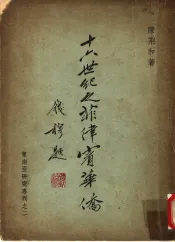 陳荊和著
十六世紀之菲律賓華僑
錢穆題
東南亞研究專刊之二